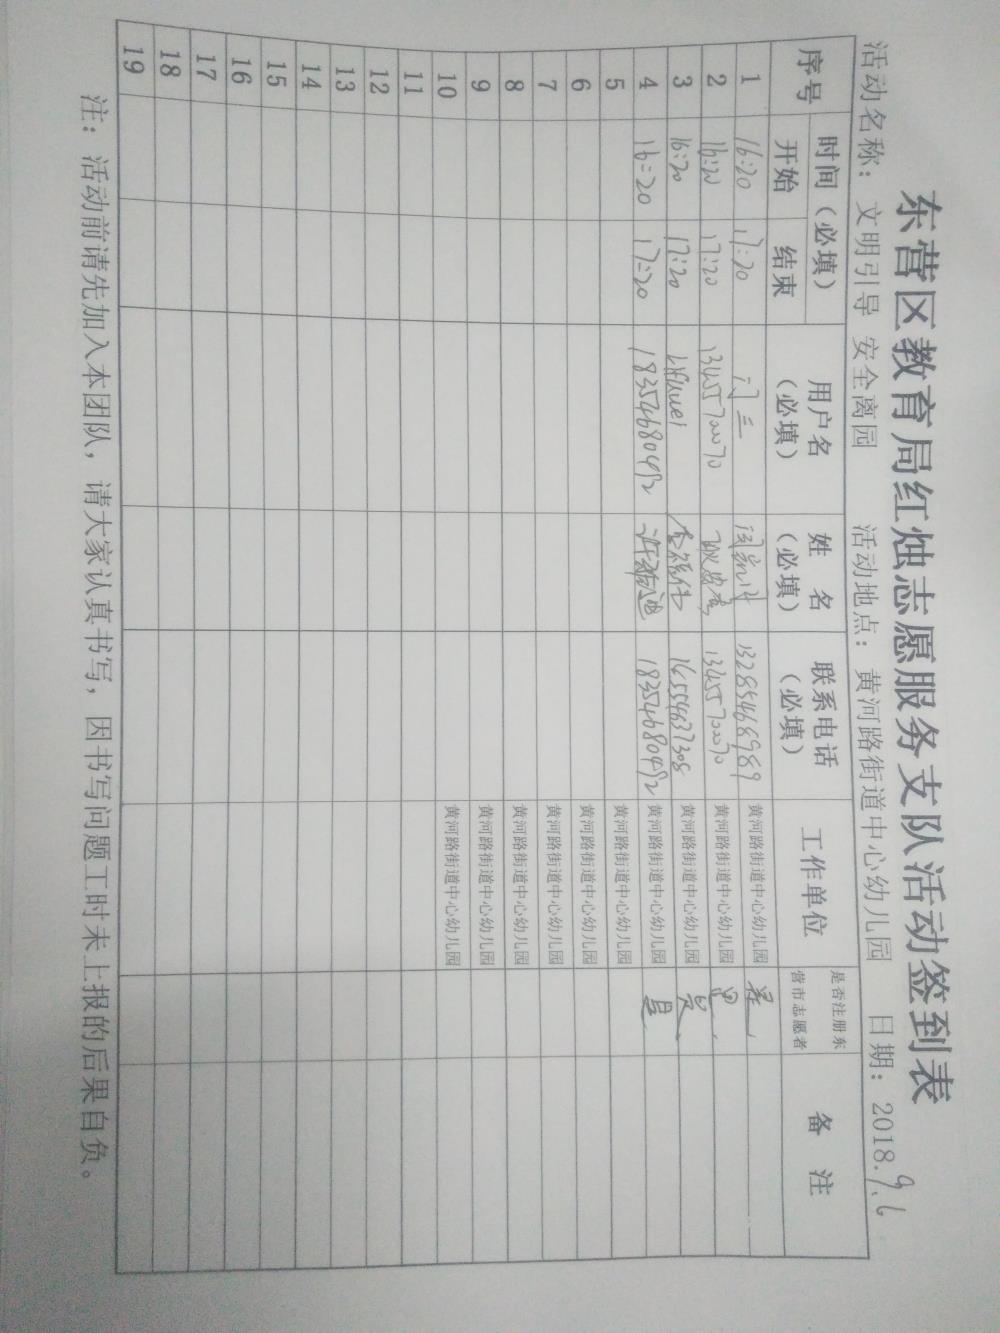 东营区教育局红烛志愿服务支队活动签到表
活动名称：文明引导 安全离园 活动地点：黄河路街道中心幼儿园 日期：2018.9.6
序号 时间（必填） 用户名（必填） 姓 名（必填） 联系电话（必填） 工作单位 是否注册东营市志愿者 备 注
开始 结束
1 16:20 17:20 13285468989 黄河路街道中心幼儿园 是
2 16:20 17:20 黄河路街道中心幼儿园 是
3 16:20 17:20 黄河路街道中心幼儿园 是
4 16:20 17:20 18354680492 18354680492 黄河路街道中心幼儿园 是
5 黄河路街道中心幼儿园
6 黄河路街道中心幼儿园
7 黄河路街道中心幼儿园
8 黄河路街道中心幼儿园
9 黄河路街道中心幼儿园
10 黄河路街道中心幼儿园
11
12
13
14
15
16
17
18
19
注：活动前请先加入本团队，请大家认真书写，因书写问题工时未上报的后果自负。